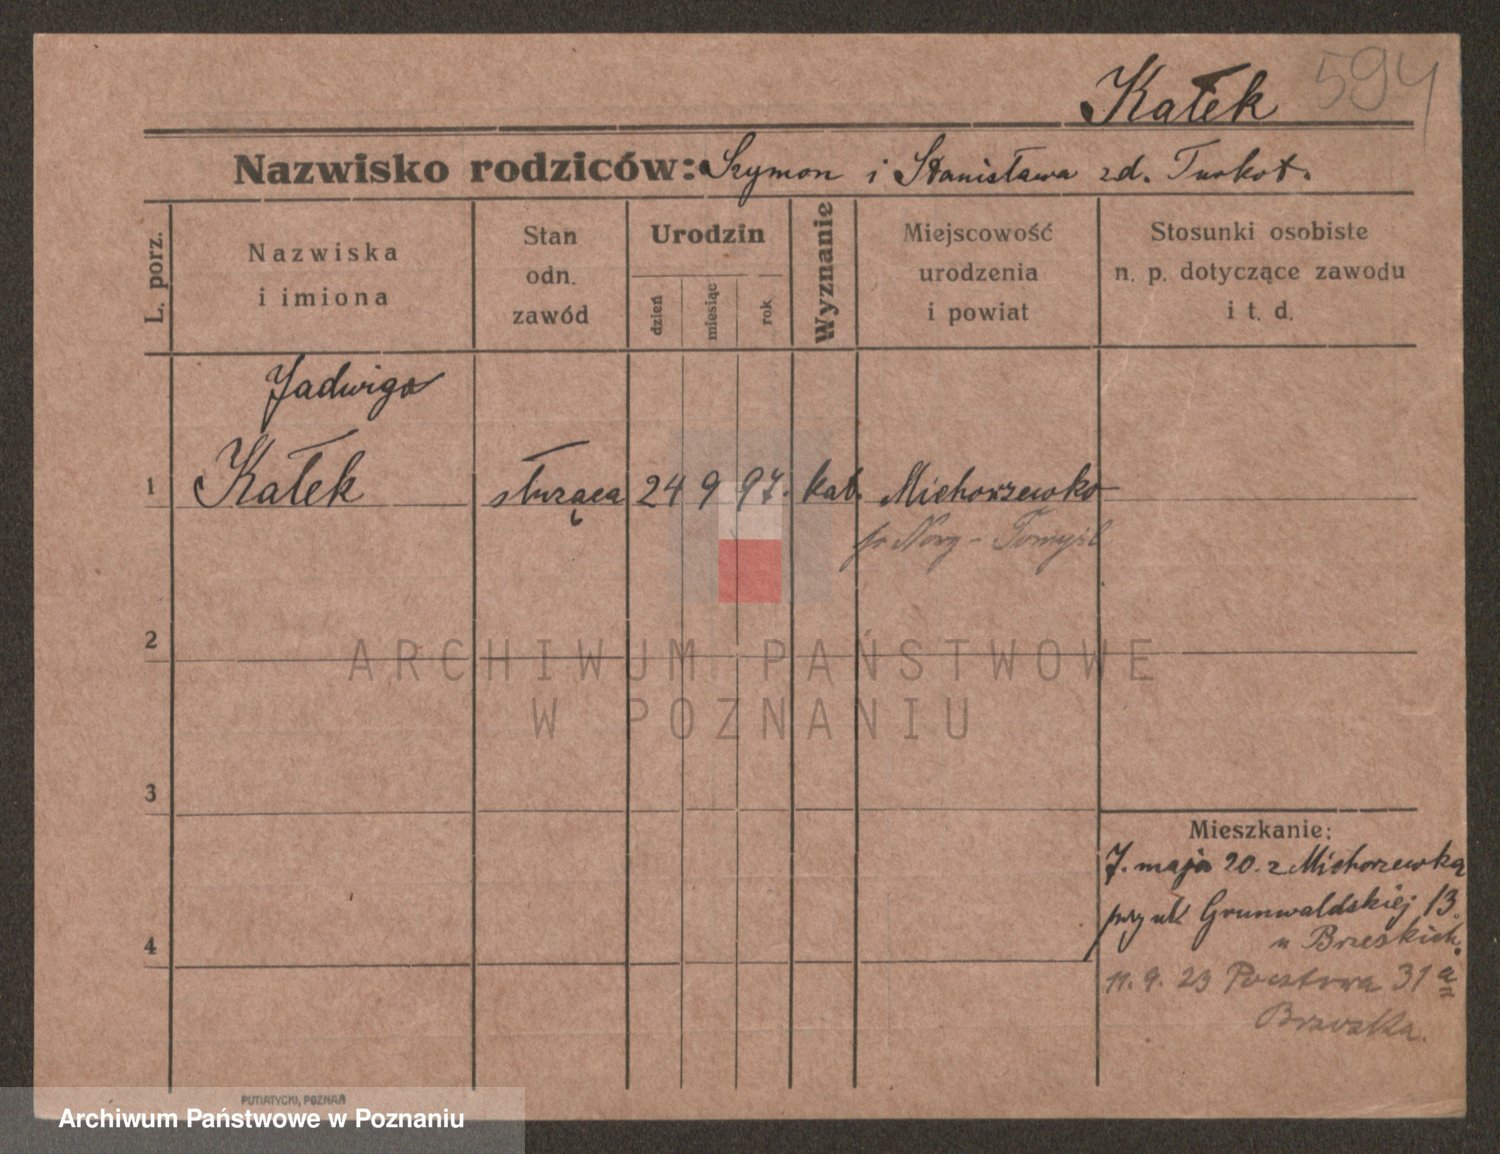 Kałek 594
Nazwisko rodziców: Szymon i Stanisława zd. Turkot.
L. porz.
Nazwiska
i imiona
Stan
odn.
zawód
Urodzin
dzień
miesiąc
rok
Wyznanie
Miejscowość
urodzenia
i powiat
Stosunki osobiste
n. p. dotyczące zawodu
i t. d.
Jadwiga
1 Kałek służąca 24 9 97. kat. Michorzewko
p. Nowy-Tomyśl
2
3
4
Mieszkanie:
7. maja 20. z Michorzewka
przy ul. Grunwaldskiej 13.
u Brzeskich.
11. 9. 23 Pocztowa 31 a
ARCHIWUM PAŃSTWOWE
W POZNANIU
PUTIATYCKI, POZNAŃ
Archiwum Państwowe w Poznaniu